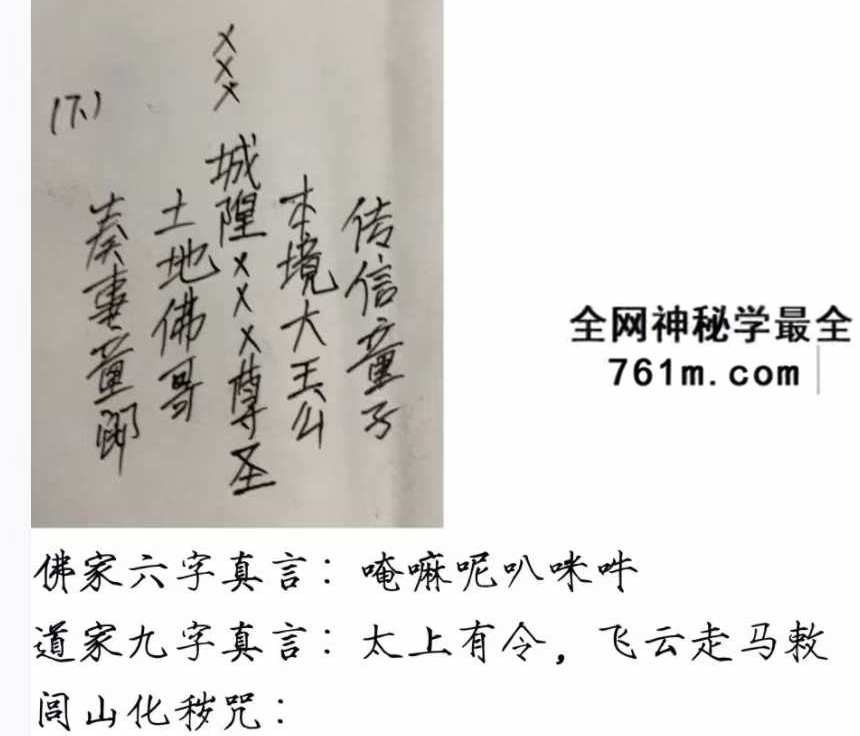 (下)
×××
传信童子
本境大王公
城隍×××尊圣
土地佛哥
奏事童郎
全网神秘学最全
761m.com
佛家六字真言：唵嘛呢叭咪吽
道家九字真言：太上有令，飞云走马敕
闾山化秽咒：